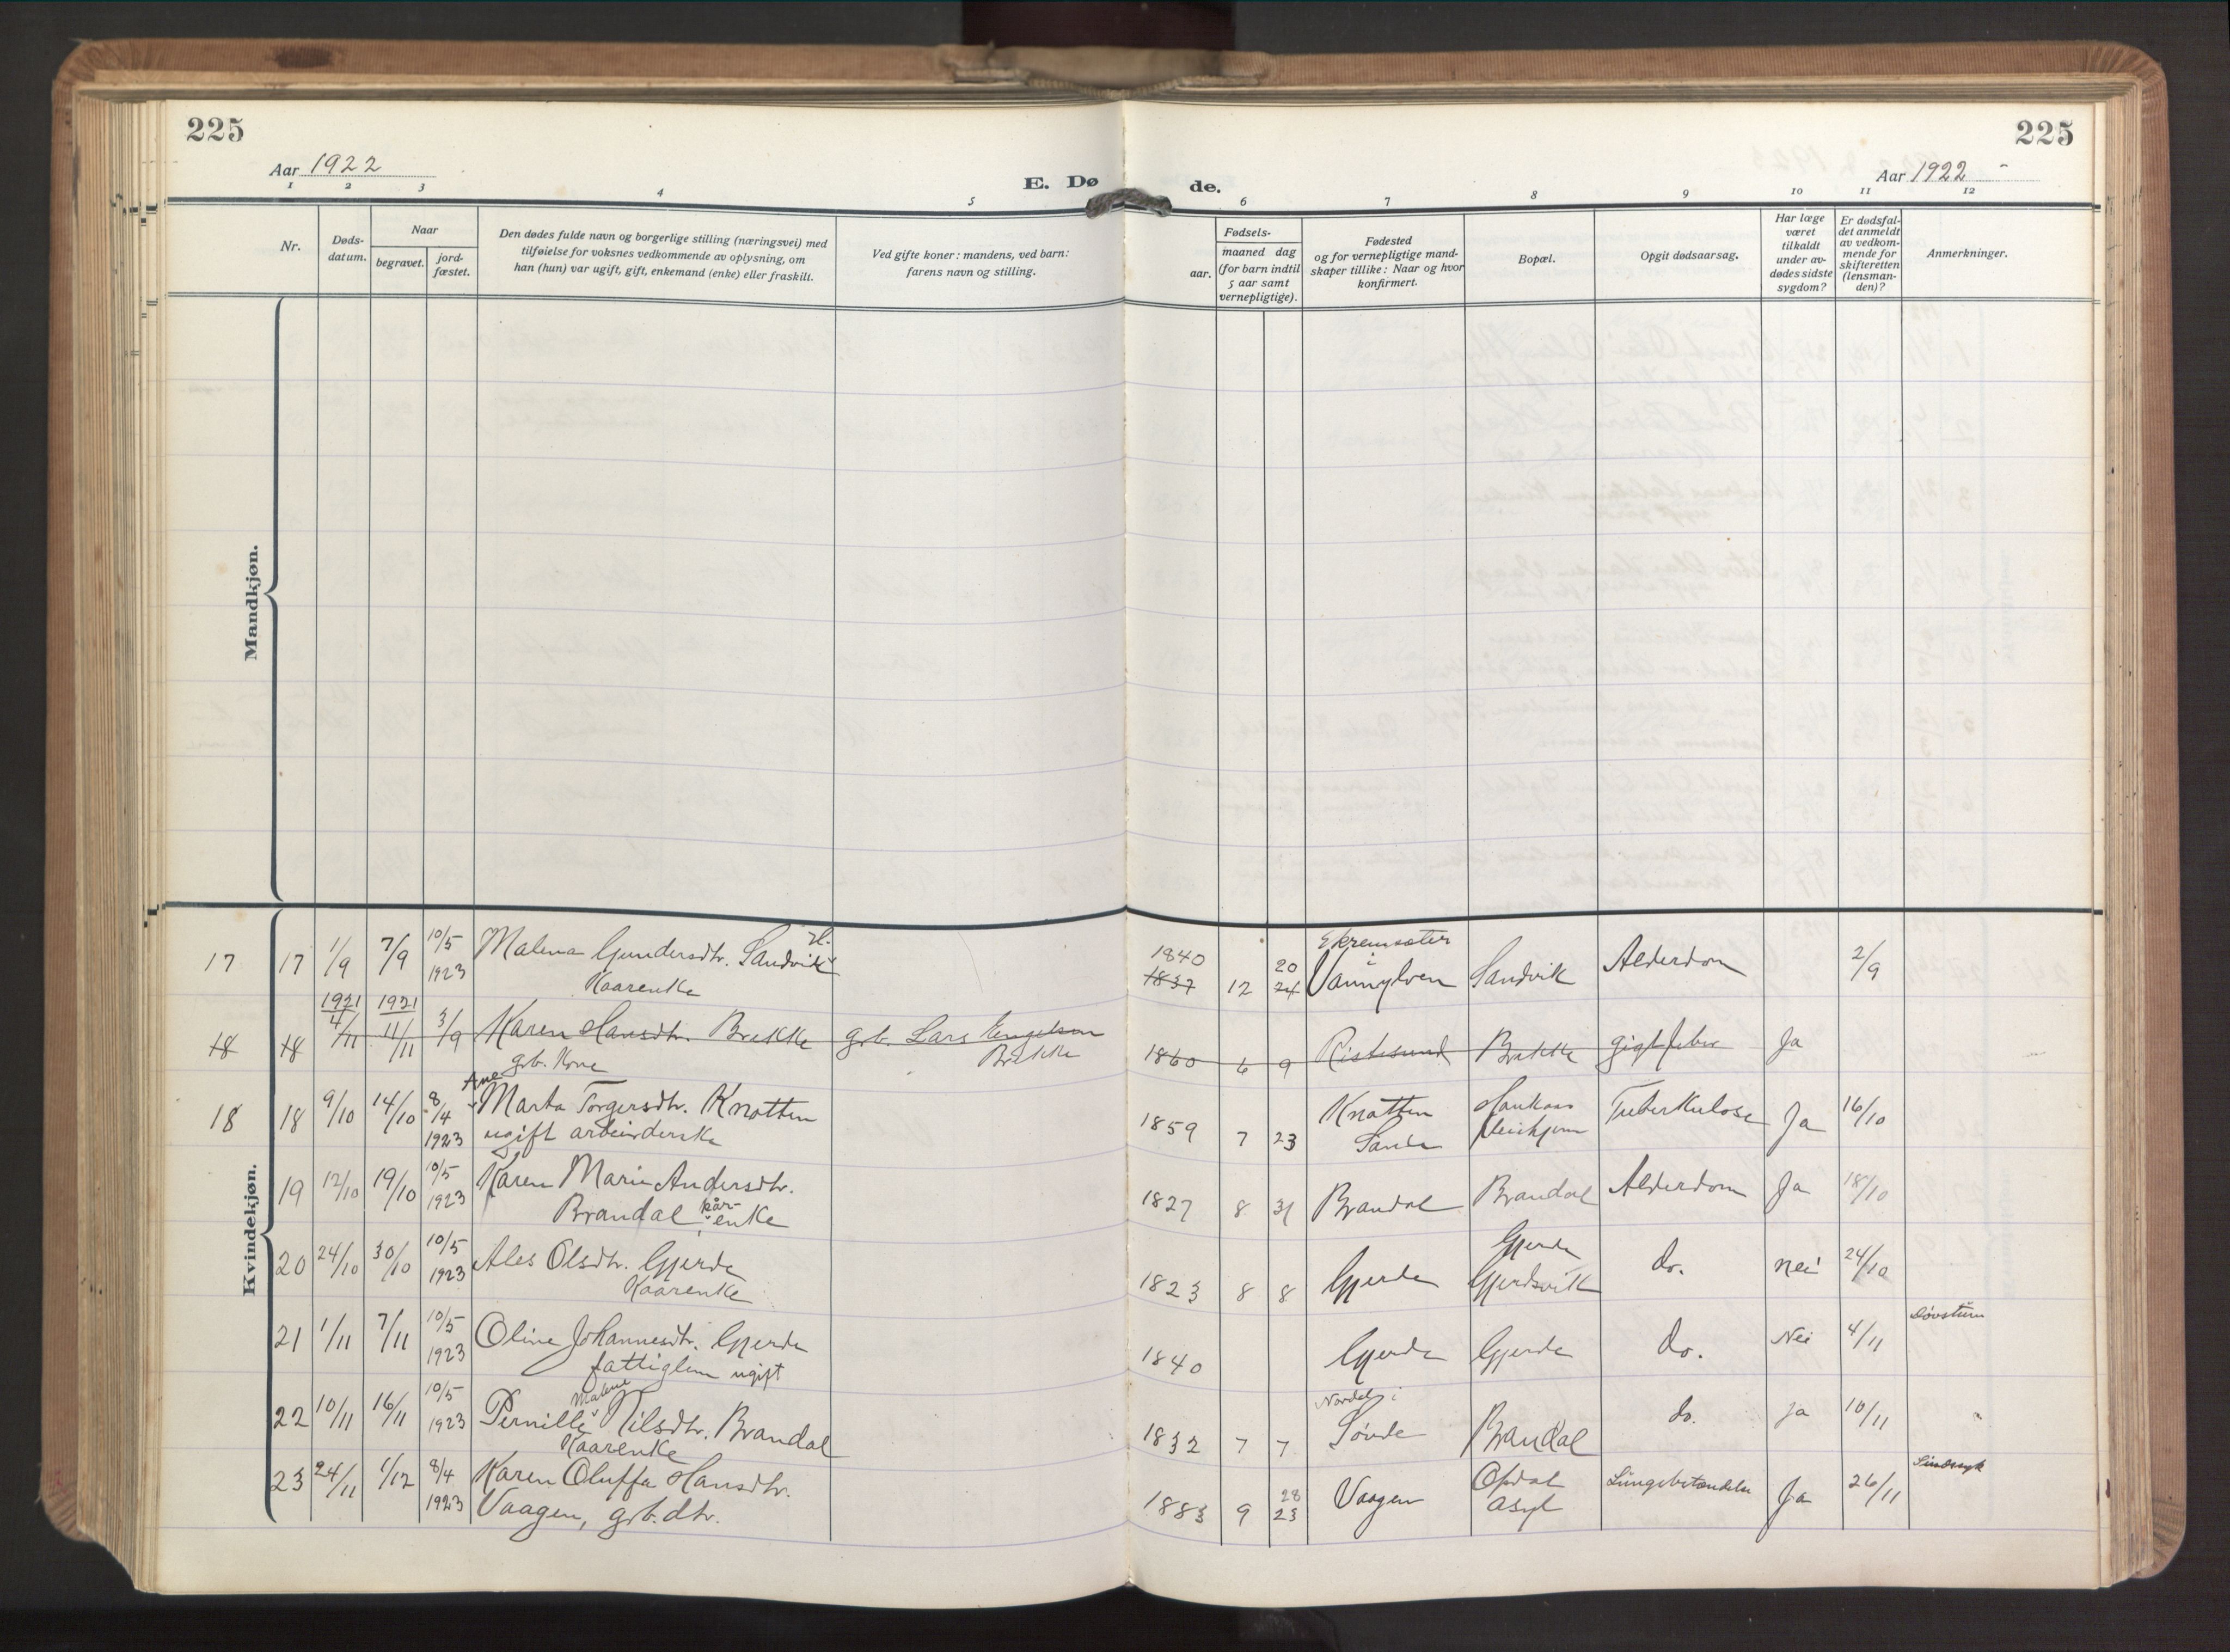 225
225
Aar 1922
E. Dø de.
Aar 1922
1 2 3 4 5 6 7 8 9 10 11 12
Nr.
Døds-
datum.
Naar
begravet.
jord-
fæstet.
Den dødes fulde navn og borgerlige stilling (næringsvei) med
tilføielse for voksnes vedkommende av oplysning, om
han (hun) var ugift, gift, enkemand (enke) eller fraskilt.
Ved gifte koner: mandens, ved barn:
farens navn og stilling.
Fødsels-
aar.
maaned dag
(for barn indtil
5 aar samt
vernepligtige).
Fødested
og for vernepligtige mand-
skaper tillike: Naar og hvor
konfirmert.
Bopæl.
Opgit dødsaarsag.
Har læge
været
tilkaldt
under av-
dødes sidste
sygdom?
Er dødsfal-
det anmeldt
av vedkom-
mende for
skifteretten
(lensman-
den)?
Anmerkninger.
Mandkjøn.
Kvindekjøn.
17 17 1/9 7/9 10/5 1923 Malena Gundersdtr. Sandvik
Kaarenke
1840
1837 12 20 24 Ekremsæter i Vannylven Sandvik Alderdom 2/9
18 18 1921 4/11 1921 11/11 3/9 Karen Hansdtr. Brekke grb. Lars Brekke
grb. Kone
1860 6 9 Ristesund Brekke gigtfeber Ja
18 18 9/10 14/10 8/4 1923 Ane Marta Torgersdtr. Knotten
ugift arbeiderske
1859 7 23 Knotten Sande Tuberkulose Ja 16/10
19 12/10 19/10 10/5 1923 Karen Marie Andersdtr.
Brandal kår-enke
1827 8 31 Brandal Brandal Alderdom Ja 18/10
20 24/10 30/10 10/5 1923 Ales Olsdtr. Gjerde
Kaarenke
1823 8 8 Gjerde Gjerde Gjerdsvik do. nei 24/10
21 1/11 7/11 10/5 1923 Oline Johannesdtr. Gjerde
fattiglem ugift
1840 Gjerde Gjerde do. Nei 4/11 Døvstum
22 10/11 16/11 10/5 1923 Pernille Malene Nilsdtr. Brandal
Kaarenke
1832 7 7 Brandal do. Ja 10/11
23 24/11 1/12 8/4 1923 Karen Oluffa Hansdtr.
Vaagen, grb. dtr.
1883 9 28 23 Vaagen Opdal asyl Lungebetændelse Ja 26/11 Sindssyk